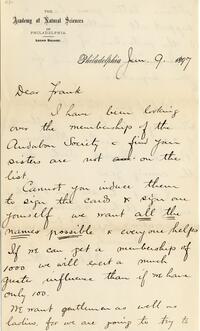 THE
Academy of Natural Sciences
OF PHILADELPHIA
LOGAN SQUARE
Philadelphia Jan. 9. 1897
Dear Frank
I have been looking
over the membership of the
Audubon Society & find your
sisters are not on the
list.
Cannot you induce them
to sign the cards & sign one
yourself we want all the
names possible & everyone helps
If we can get a membership of
1000 we will exert a much
greater influence than if we have
only 100.
We want gentlemen as well as
ladies, for we are going to try to